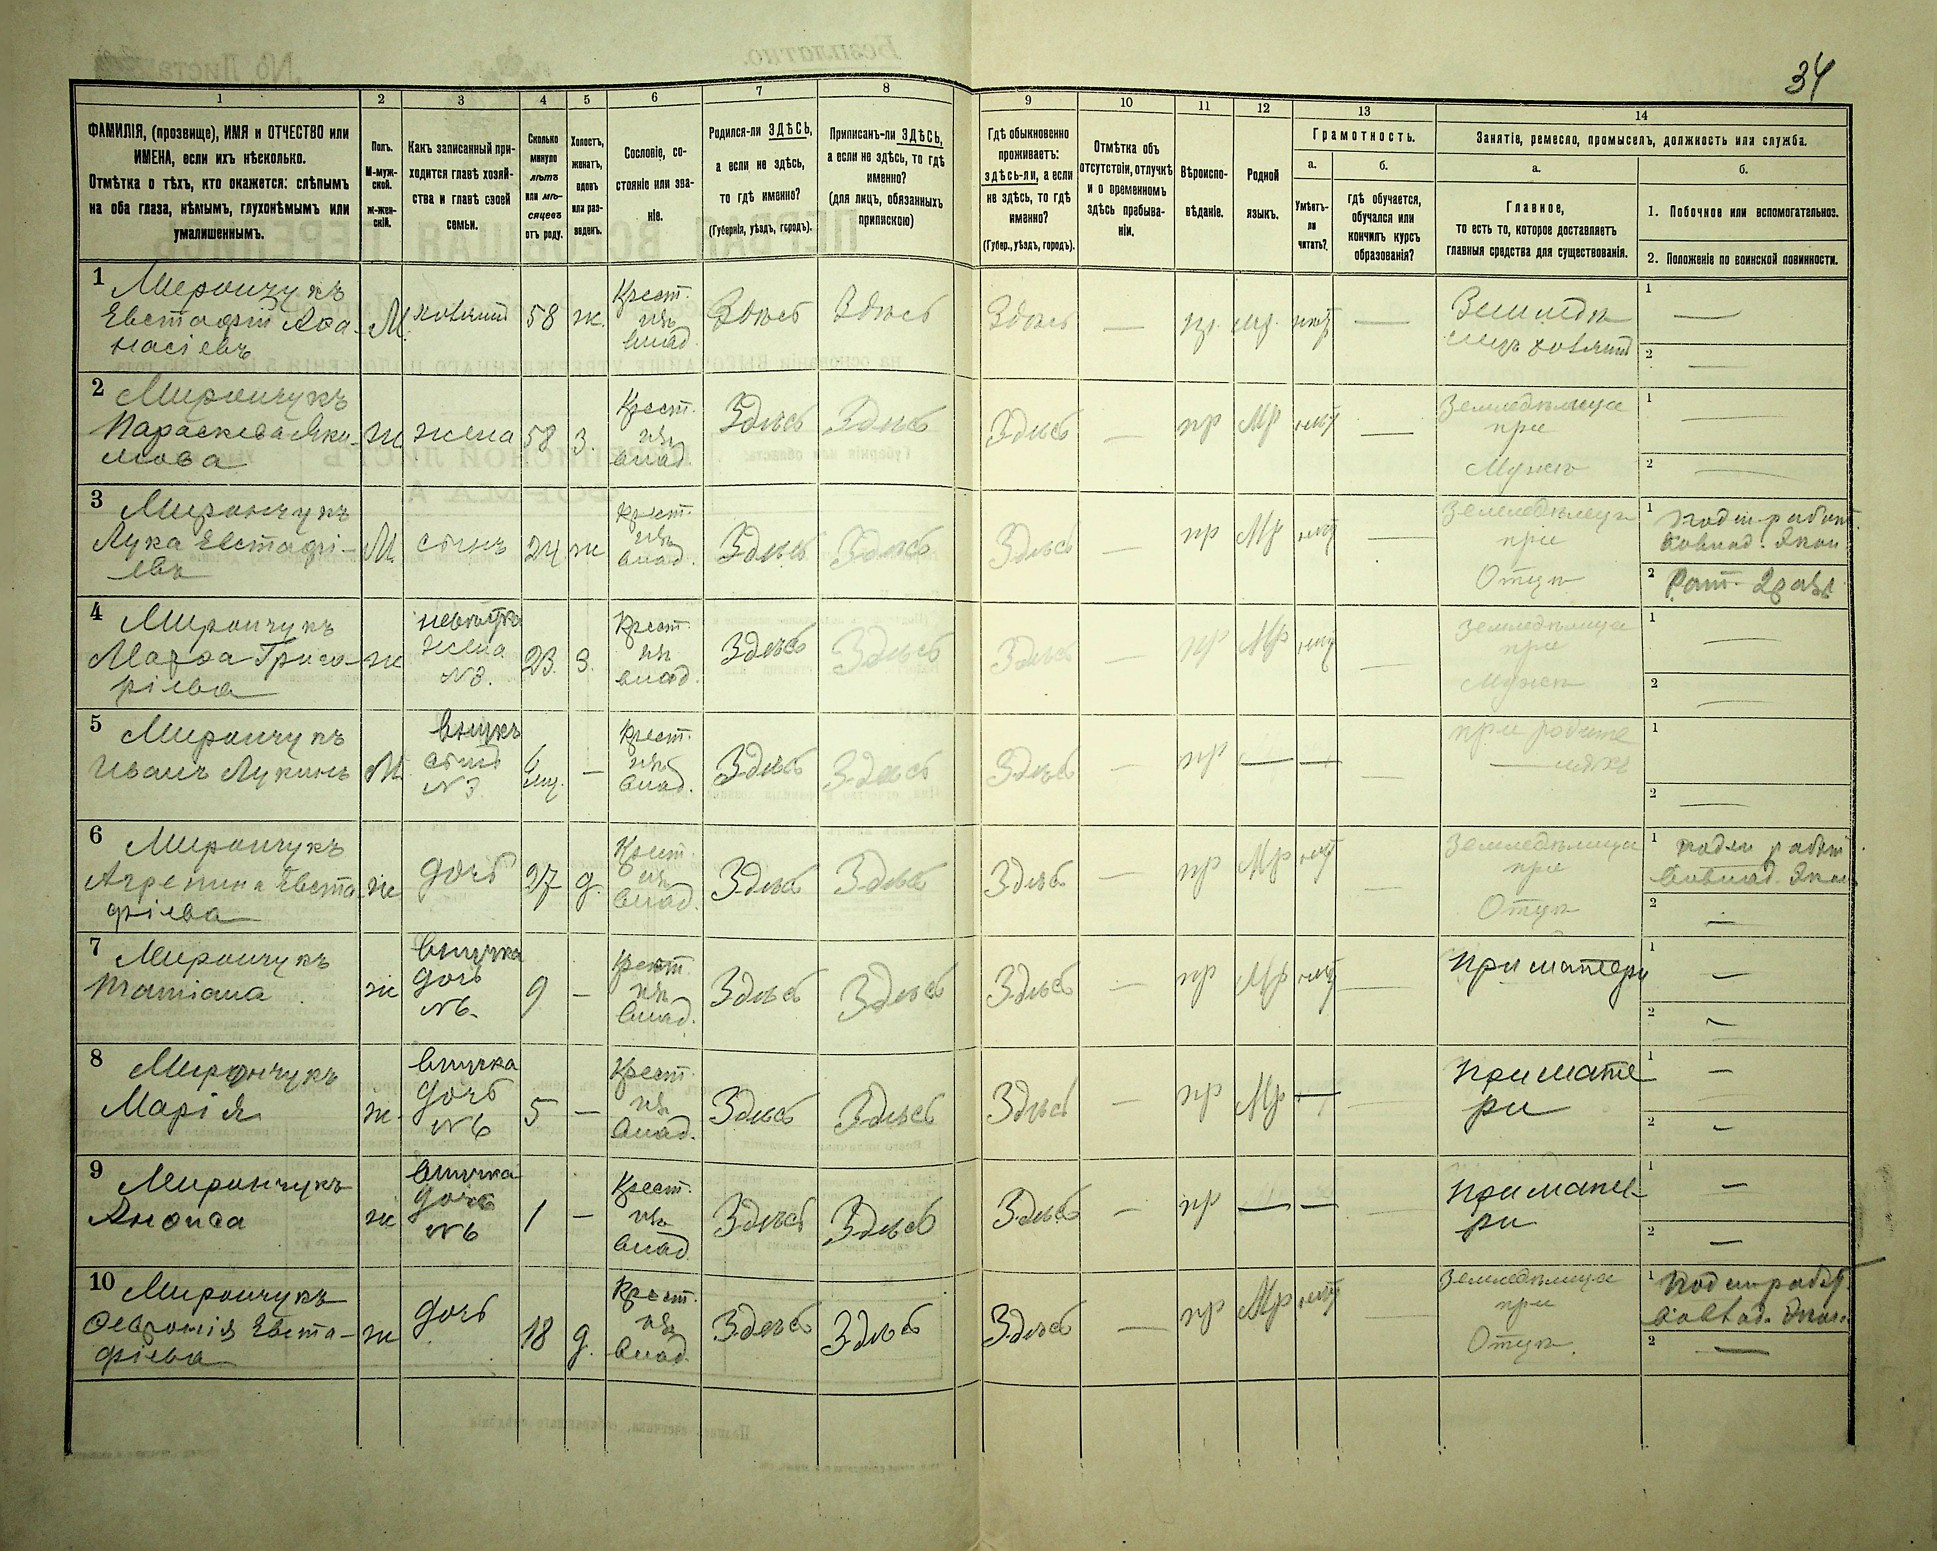 34
1 2 3 4 5 6 7 8 9 10 11 12 13 14
ФАМИЛІЯ, (прозвище), ИМЯ и ОТЧЕСТВО или
ИМЕНА, если ихъ нѣсколько.
Отмѣтка о тѣхъ, кто окажется: слѣпымъ
на оба глаза, нѣмымъ, глухонѣмымъ или
умалишеннымъ.
Полъ.
М-муж-
ской.
ж-жен-
скій.
Какъ записанный при-
ходится главѣ хозяй-
ства и главѣ своей
семьи.
Сколько
минуло
лѣтъ
или мѣ-
сяцевъ
отъ роду.
Холостъ,
женатъ,
вдовъ
или раз-
веденъ.
Сословіе, со-
стояніе или зва-
ніе.
Родился-ли ЗДѢСЬ,
а если не здѣсь,
то гдѣ именно?
(Губернія, уѣздъ, городъ).
Приписанъ-ли ЗДѢСЬ,
а если не здѣсь, то гдѣ
именно?
(для лицъ, обязанныхъ
припискою)
Гдѣ обыкновенно
проживаетъ:
здѣсь-ли, а если
не здѣсь, то гдѣ
именно?
(Губер., уѣздъ, городъ).
Отмѣтка объ
отсутствіи, отлучкѣ
и о временномъ
здѣсь пребыва-
ніи.
Вѣроиспо-
вѣданіе.
Родной
языкъ.
Грамотность.
а.
Умѣетъ-
ли
читать?
б.
гдѣ обучается,
обучался или
кончилъ курсъ
образованія?
Занятіе, ремесло, промыселъ, должность или служба.
а.
Главное,
то есть то, которое доставляетъ
главныя средства для существованія.
б.
1. Побочное или вспомогательное.
2. Положеніе по воинской повинности.
1 Мирончукъ
Евстафій Аѳа-
насіевъ
М. хозяинъ 58 ж. Крест.
влад. Здѣсь Здѣсь Здѣсь — пр. мр. нѣтъ — —
2 —
2 Мирончукъ
Параскева Яки-
мова
ж жена 58 з. Крест.
влад. Здѣсь Здѣсь Здѣсь — пр Мр нѣтъ — Земледѣлица
при
Мужѣ
1 —
2 —
3 Мирончукъ
Лука Евстафі-
евъ
М. сынъ 24 ж Крест.
влад. Здѣсь Здѣсь Здѣсь — пр Мр нѣтъ — Земледѣлецъ
при
Отцѣ
1
2
4 Мирончукъ
Марѳа Григо-
ріева
ж невѣстка
жена
№3. 23 з. Крест.
влад. Здѣсь Здѣсь Здѣсь — пр Мр нѣтъ — Земледѣлица
при
Мужѣ
1 —
2 —
5 Мирончукъ
Иванъ Лукинъ
М внукъ
сынъ
№3 6
мѣс. — Крест.
влад. Здѣсь Здѣсь Здѣсь — пр — — — при родите
ляхъ
1
2 —
6 Мирончукъ
Агрепина Евста
фіева
ж дочь 27 д. Крест.
влад. Здѣсь Здѣсь Здѣсь — пр Мр нѣтъ — Земледѣлица
при
Отцѣ
1
2 —
7 Мирончукъ
Татіана
ж внучка
дочь
№6. 9 — Крест.
влад. Здѣсь Здѣсь Здѣсь — пр Мр нѣтъ — При матери
1 —
2 —
8 Мирончукъ
Марія
ж. внучка
дочь
№6 5 — Крест.
влад. Здѣсь Здѣсь Здѣсь — пр Мр — — При мате
ри
1 —
2 —
9 Мирончукъ
Анѳиса
ж внучка
дочь
№6 1 — Крест.
влад. Здѣсь Здѣсь Здѣсь — пр — — — При мате-
ри
1 —
2 —
10 Мирончукъ
Ѳевронія Евста-
фіева
ж дочь 18 д. Крест.
влад. Здѣсь Здѣсь Здѣсь — пр Мр нѣтъ — Земледѣлица
при
Отцѣ.
1
2 —